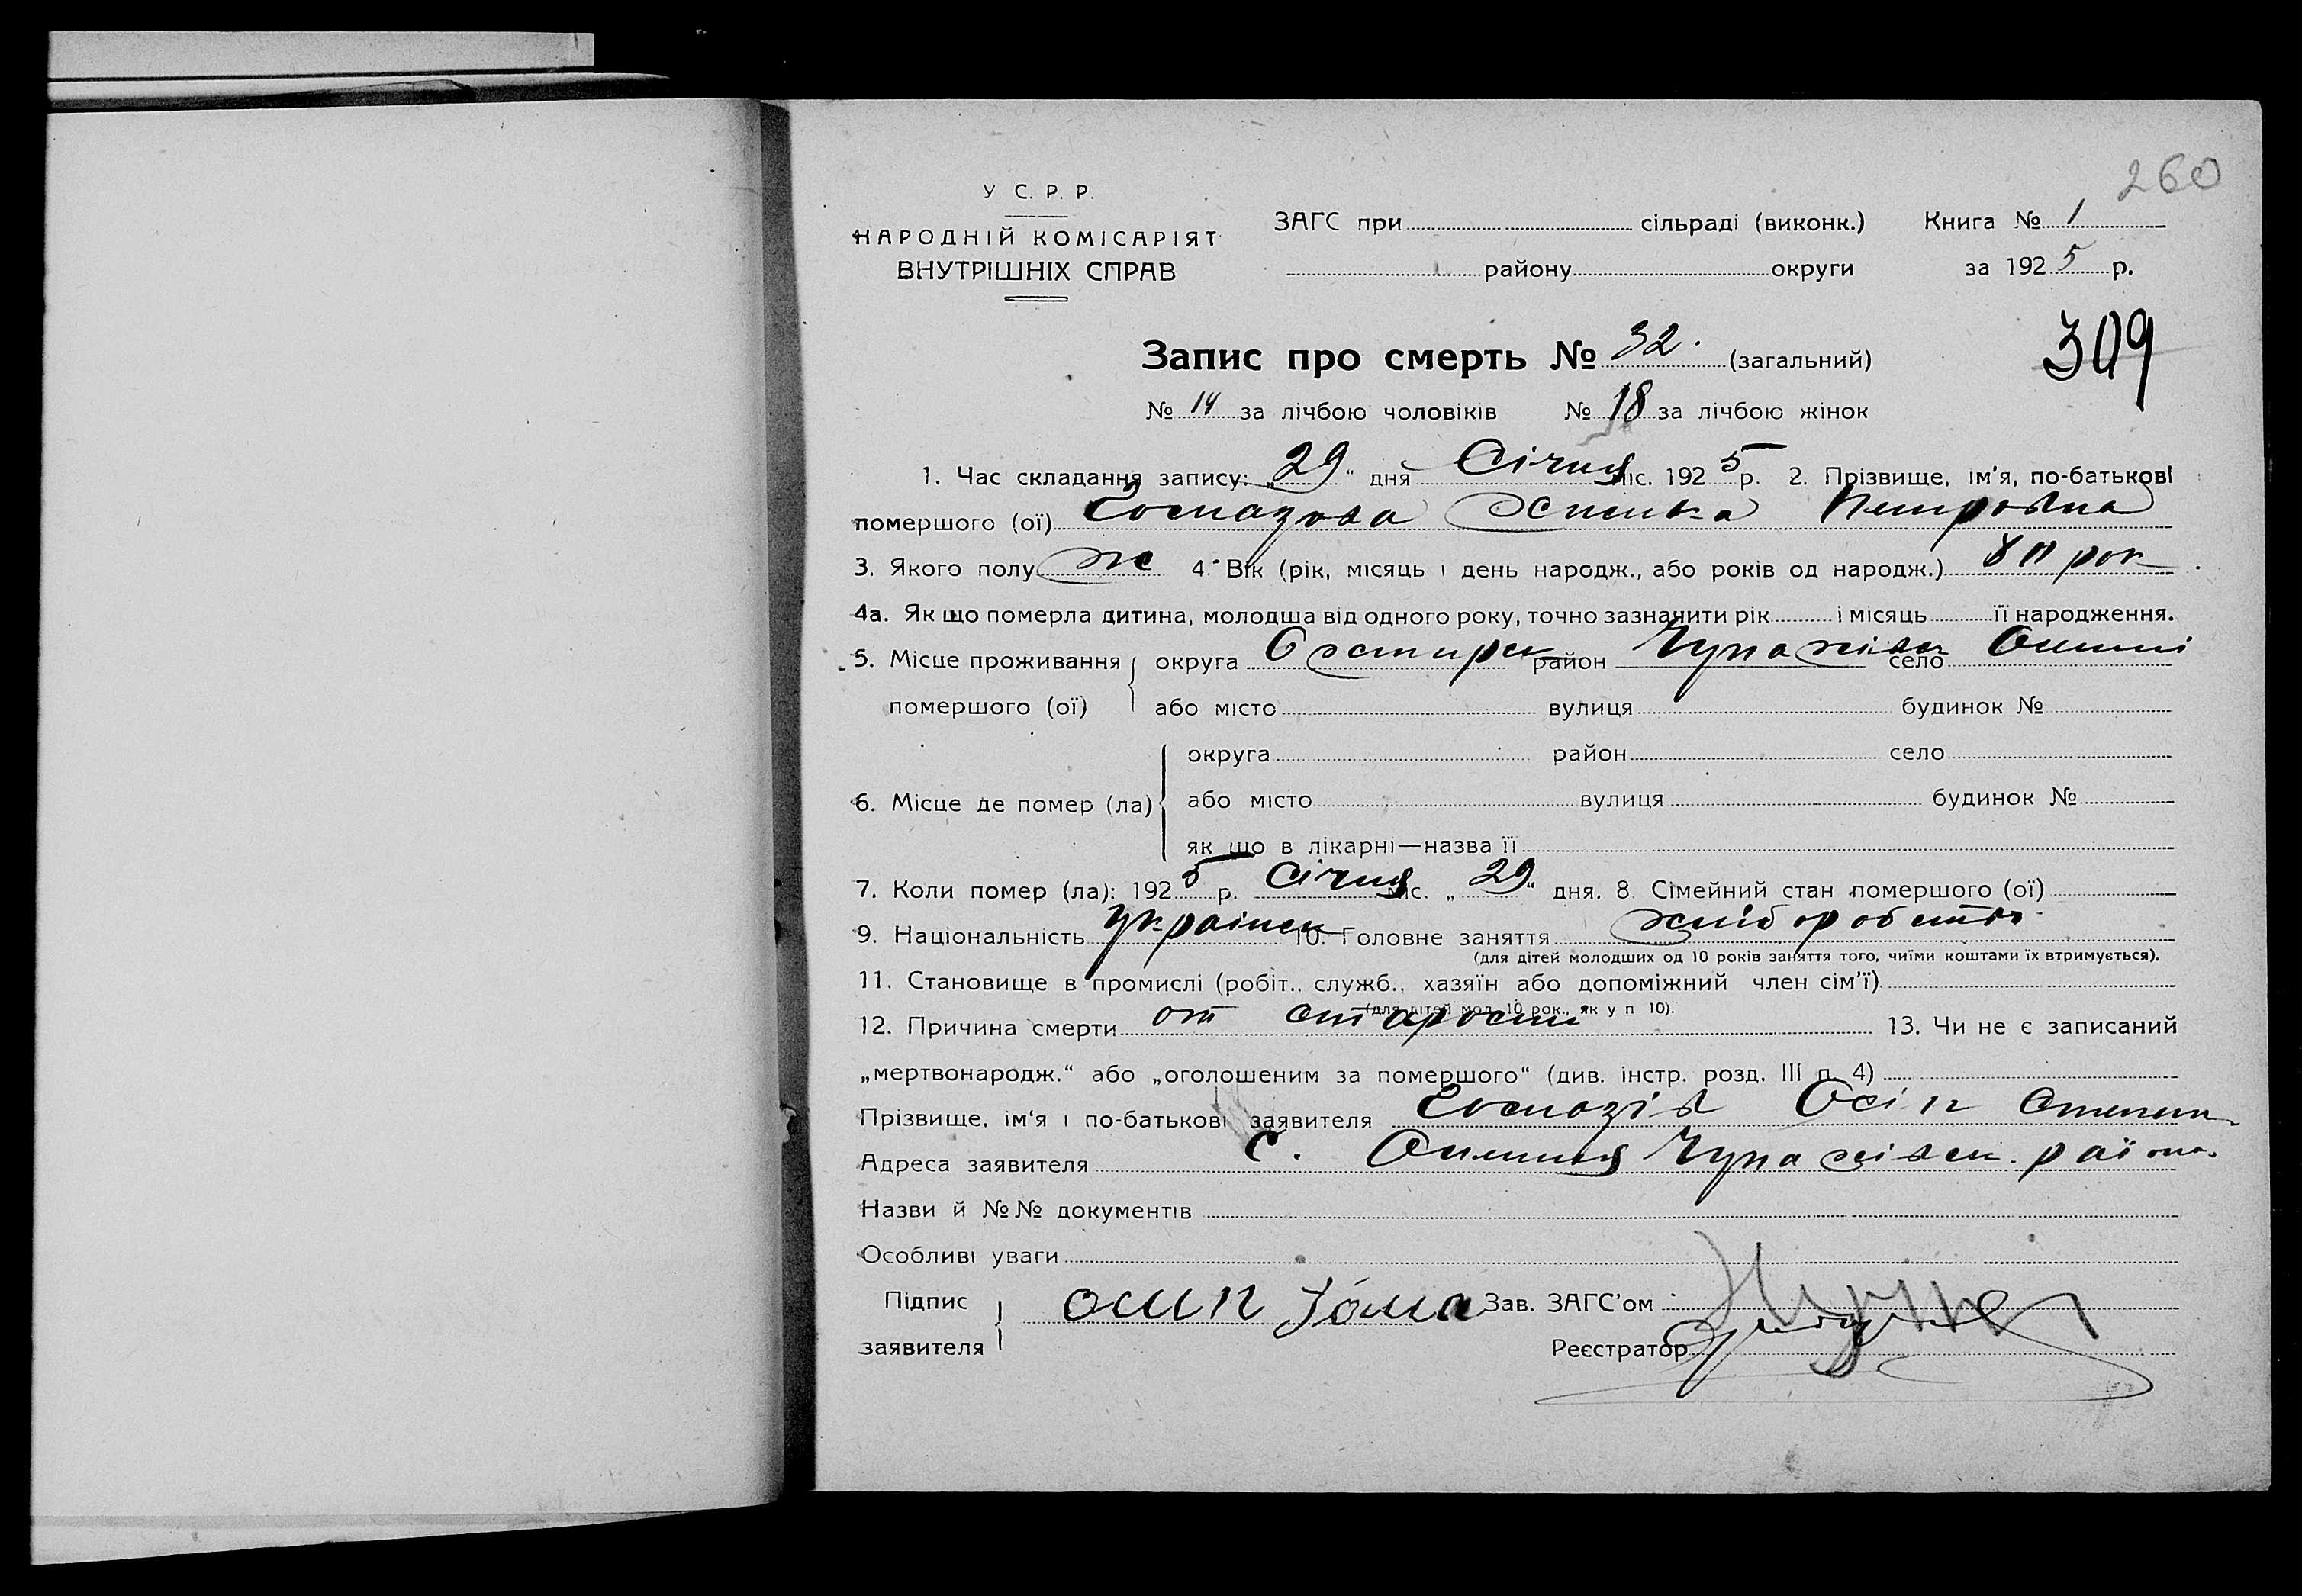 260
У С. Р. Р.
НАРОДНІЙ КОМІСАРІЯТ
ВНУТРІШНІХ СПРАВ
ЗАГС при сільраді (виконк.) Книга № 1
району округи за 1925 р.
309
Запис про смерть № 32. (загальний)
№ 14 за лічбою чоловіків № 18 за лічбою жінок
1. Час складання запису: „29“ дня Січня міс. 1925 р. 2. Прізвище, ім'я, по-батькові
помершого (ої) Петровна
3. Якого полу ж 4. Вік (рік, місяць і день народж., або років од народж.) рок
4а. Як що померла дитина, молодша від одного року, точно зазначити рік і місяць її народження.
5. Місце проживання округа Охтирск район Чупахівск село Олешні
помершого (ої) або місто вулиця будинок №
округа район село
6. Місце де помер (ла) або місто вулиця будинок №
як що в лікарні—назва її
7. Коли помер (ла): 1925 р. Січня міс. „29“ дня. 8. Сімейний стан помершого (ої)
9. Національність україн 10. Головне заняття хлібороб
(для дітей молодших од 10 років заняття того, чиїми коштами їх втримується).
11. Становище в промислі (робіт., служб., хазяїн або допоміжний член сім'ї)
(для дітей мол. 10 рок., як у п 10).
12. Причина смерти от старости 13. Чи не є записаний
„мертвонародж.“ або „оголошеним за помершого“ (див. інстр. розд. III п. 4)
Прізвище, ім'я і по-батькові заявителя Осіп
Адреса заявителя с. Олешня Чупахівск. району
Назви й №№ документів
Особливі уваги
Підпис Зав. ЗАГС'ом
заявителя Реєстратор